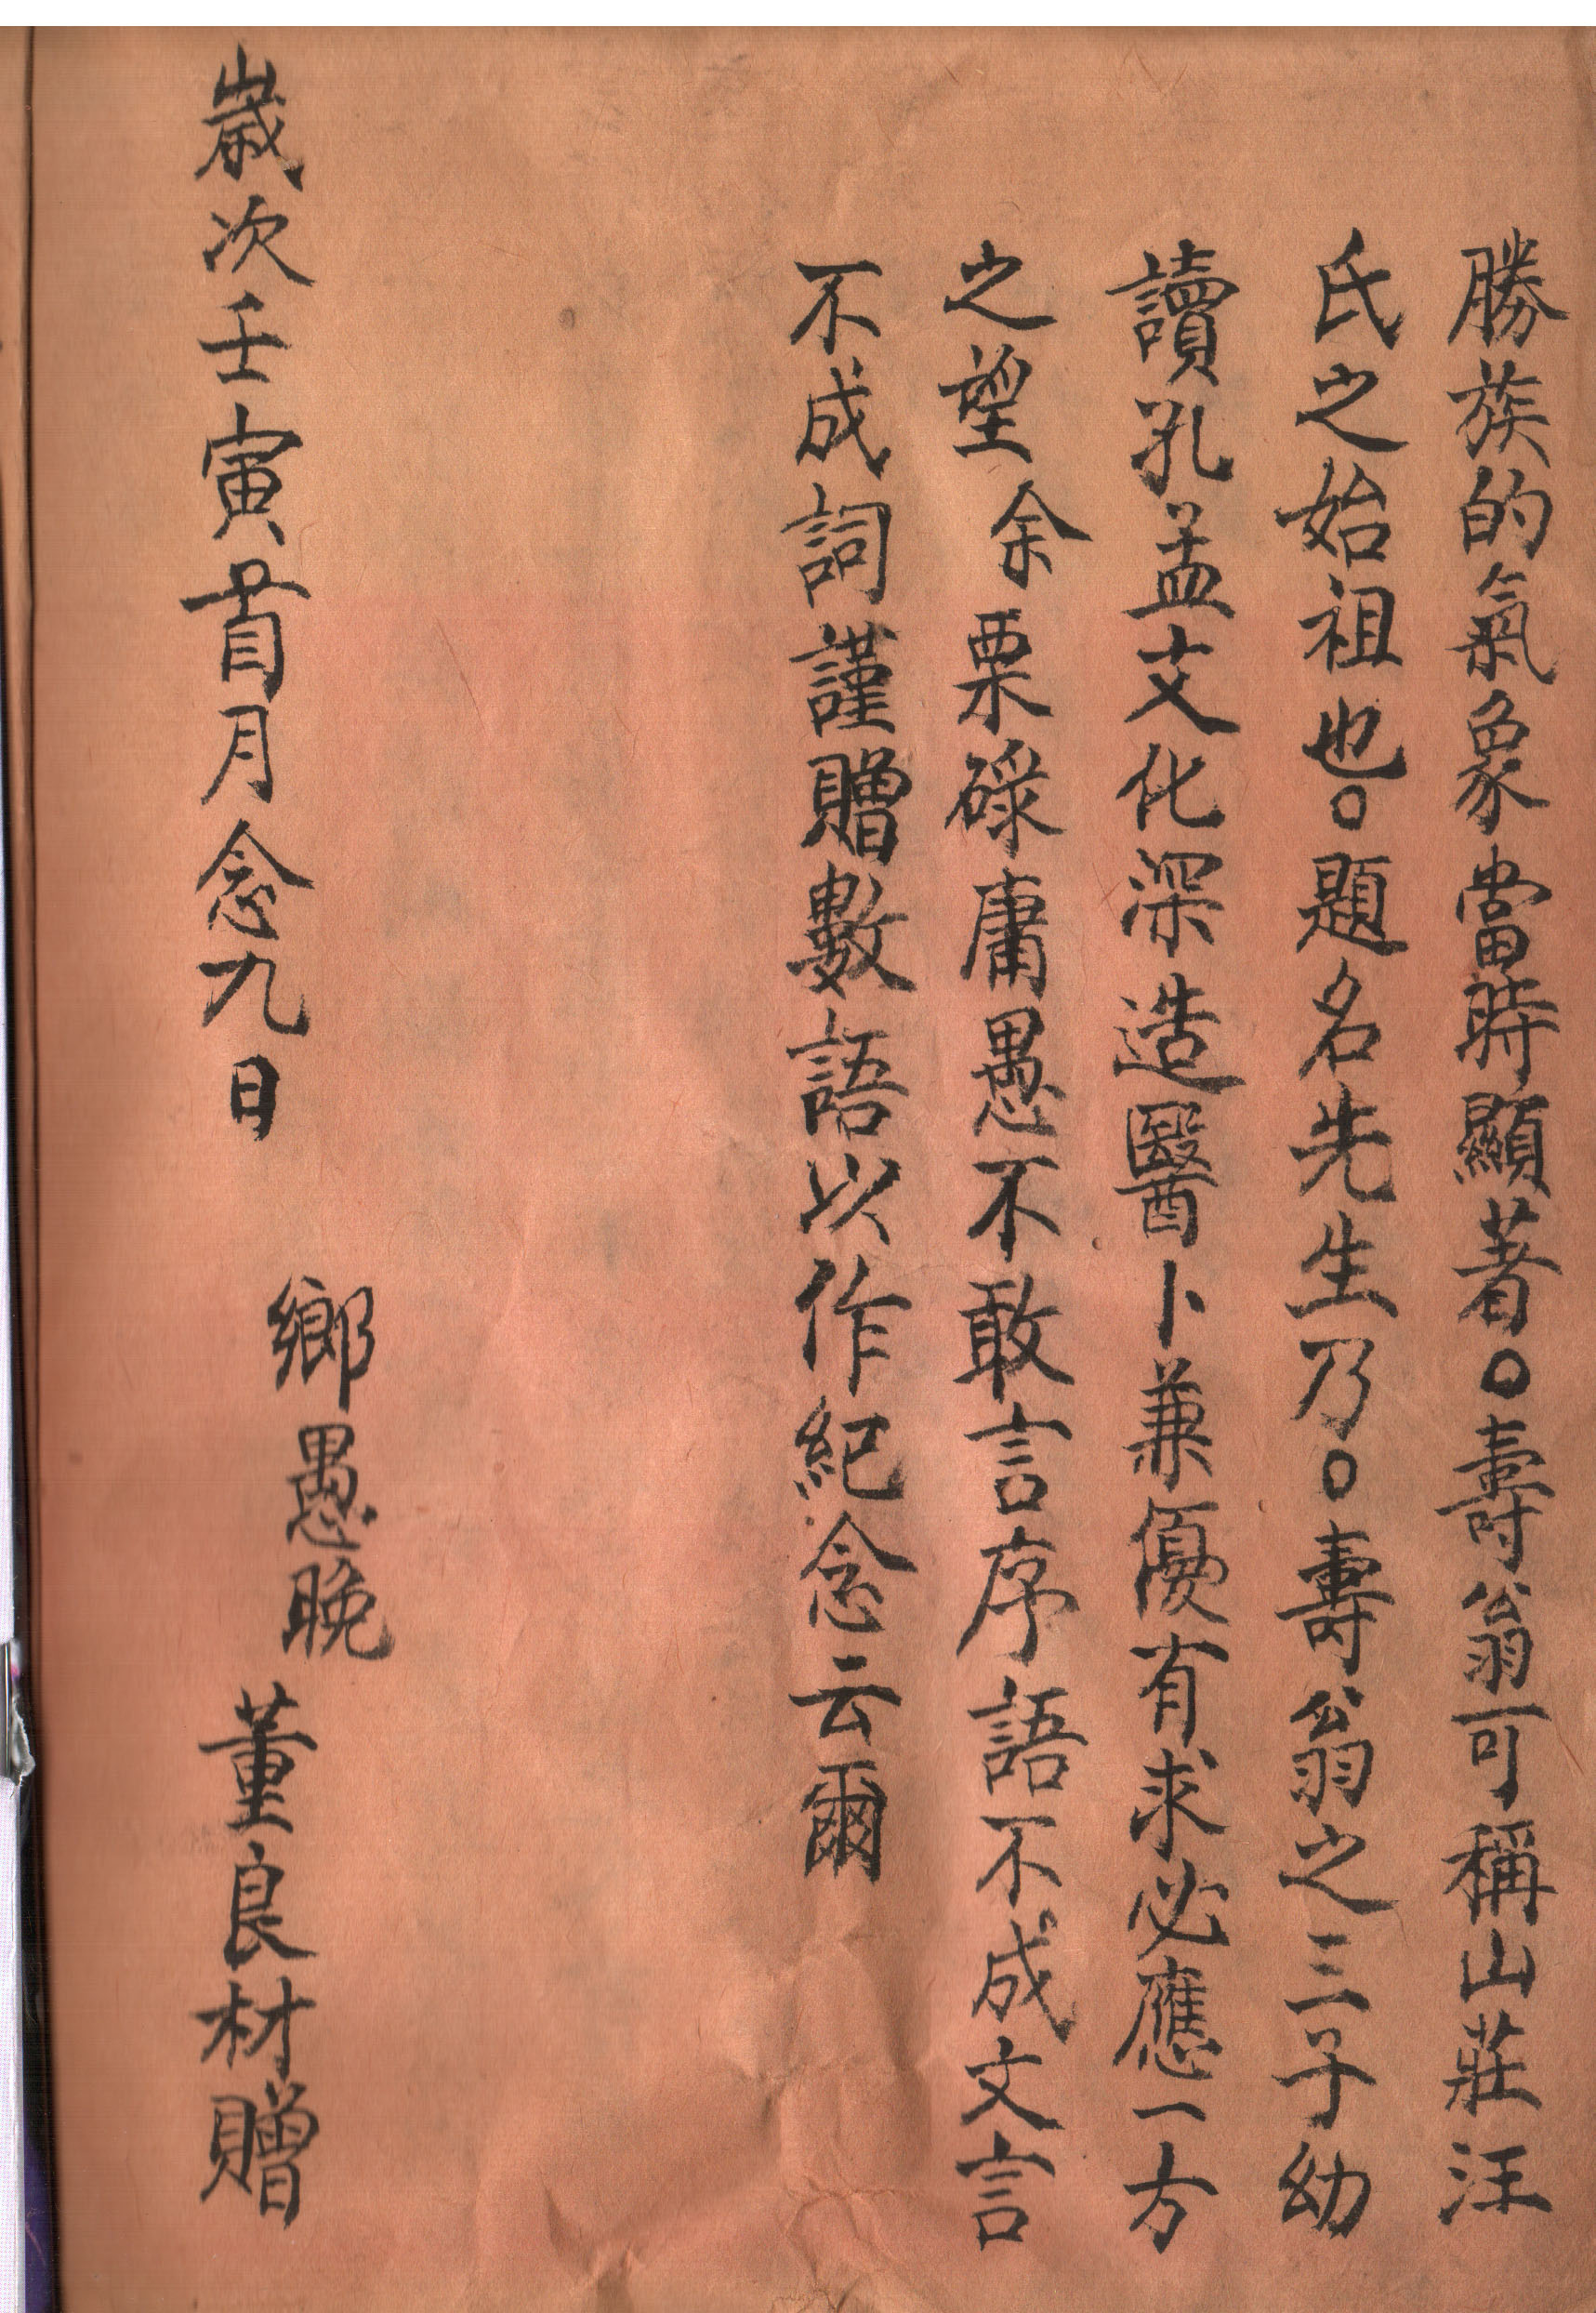 勝族的氣象當時顯著。壽翁可稱山莊汪
氏之始祖也。題名先生乃。壽翁之三子幼
讀孔孟文化深造醫卜兼優有求必應一方
之望余栗碌庸愚不敢言序語不成文言
不成詞謹贈數語以作紀念云爾
歲次壬寅首月念九日
鄉愚晚
董良材贈